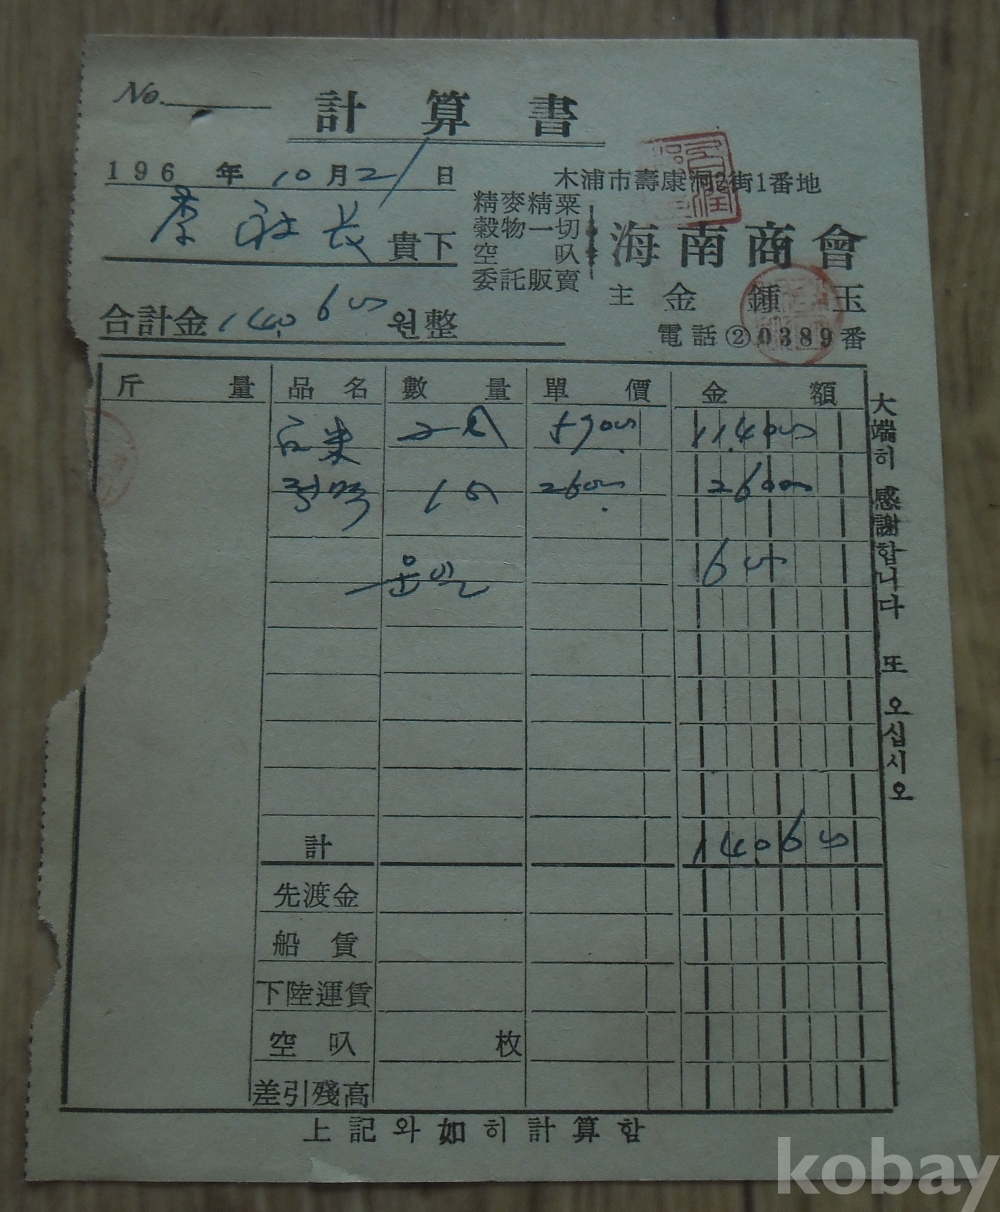 No.
計算書
196 年 10 月 21 日
李社長 貴下
合計金 14,0600 원整
木浦市壽康洞2街1番地
精麥精粟
穀物一切
空叺
委託販賣
海南商會
主 金鍾玉
電話②0389番
斤量 品名 數量 單價 金額
白米 2叺 5700 11400
1叺 2600 2600
운임 600
計 14,0600
先渡金
船賃
下陸運賃
空叺 枚
差引殘高
上記와如히計算함
大端히 感謝합니다 또 오십시오
kobay